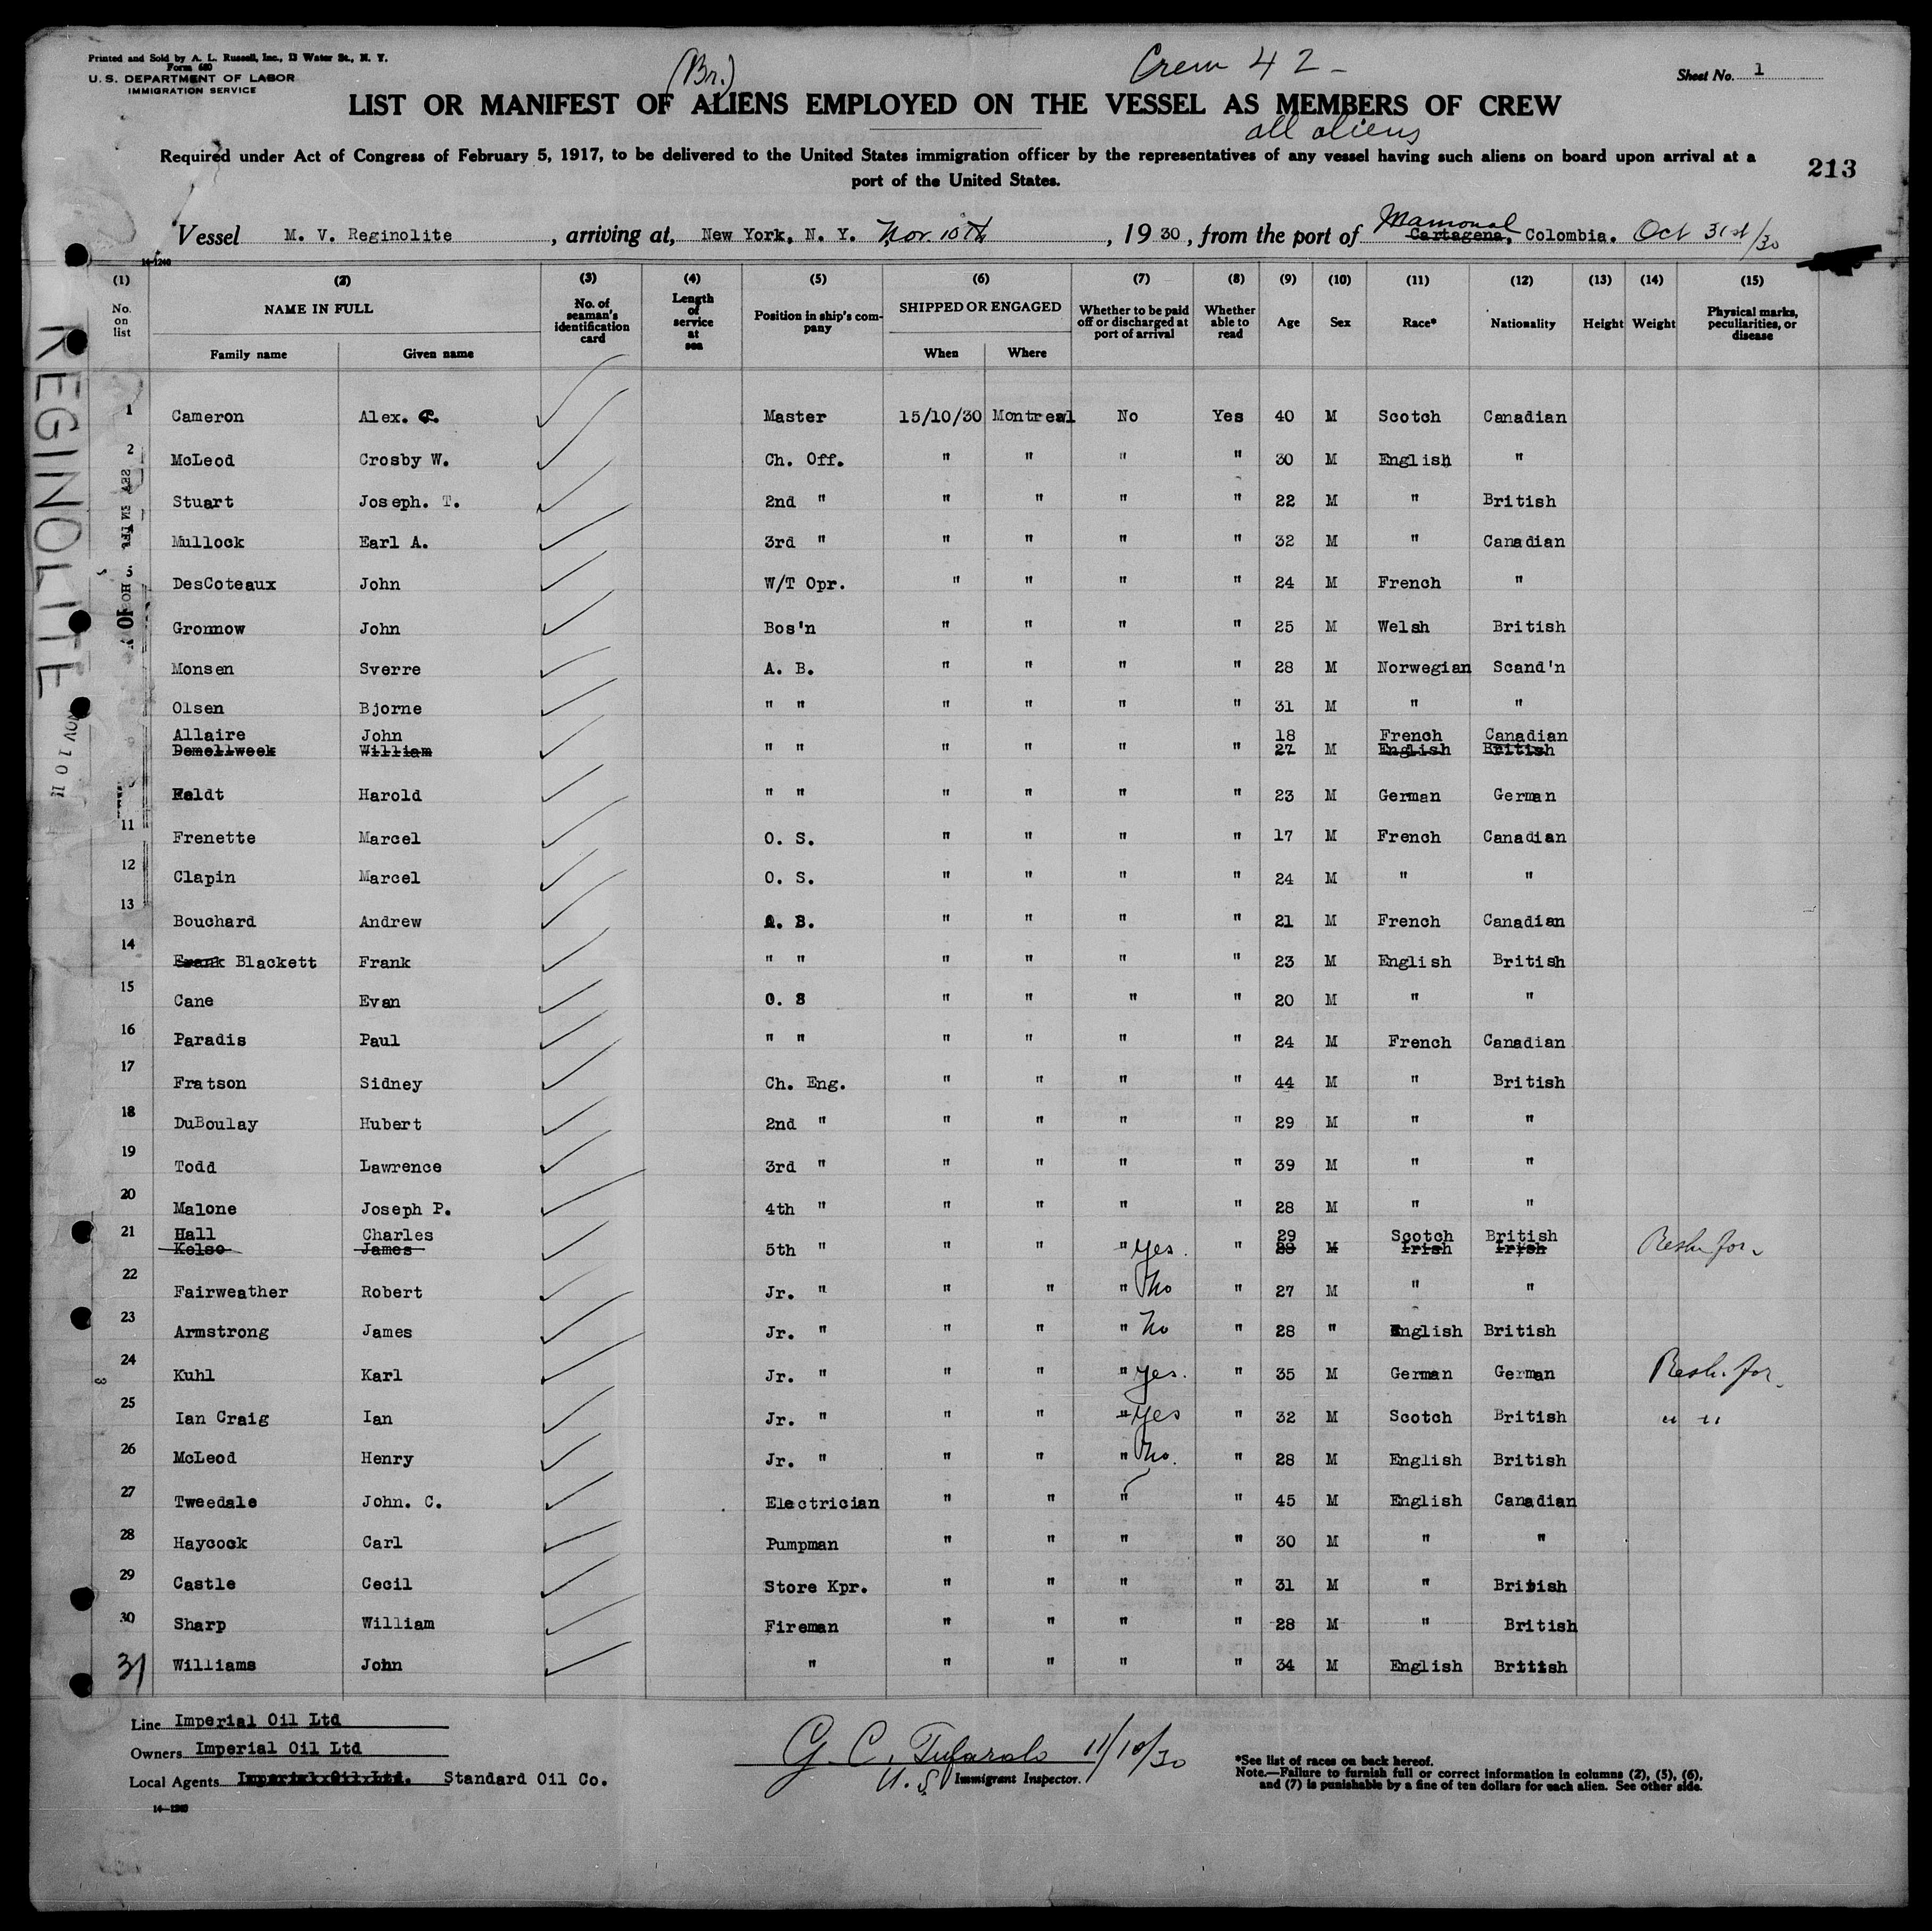 Printed and Sold by A. L. Russell, Inc., 13 Water St., N. Y.
Form 680
U. S. DEPARTMENT OF LABOR
IMMIGRATION SERVICE
(Br.)
Crew 42 -
Sheet No. 1
LIST OR MANIFEST OF ALIENS EMPLOYED ON THE VESSEL AS MEMBERS OF CREW
all aliens
Required under Act of Congress of February 5, 1917, to be delivered to the United States immigration officer by the representatives of any vessel having such aliens on board upon arrival at a
port of the United States.
213
Vessel M. V. Reginolite, arriving at, New York, N. Y. Nov. 10th, 1930, from the port of Mamonal Cartagena, Colombia. Oct 31st/30
14-1240
REGINOLITE
NOV 10
(1) (2) (3) (4) (5) (6) (7) (8) (9) (10) (11) (12) (13) (14) (15)
No. on list NAME IN FULL No. of seaman's identification card Length of service at sea Position in ship's company SHIPPED OR ENGAGED Whether to be paid off or discharged at port of arrival Whether able to read Age Sex Race* Nationality Height Weight Physical marks, peculiarities, or disease
Family name Given name When Where
1 Cameron Alex. C. Master 15/10/30 Montreal No Yes 40 M Scotch Canadian
2 McLeod Crosby W. Ch. Off. " " " " 30 M English "
Stuart Joseph. T. 2nd " " " " " 22 M " British
Mullock Earl A. 3rd " " " " " 32 M " Canadian
5 DesCoteaux John W/T Opr. " " " " 24 M French "
Gronnow John Bos'n " " " " 25 M Welsh British
Monsen Sverre A. B. " " " " 28 M Norwegian Scand'n
Olsen Bjorne " " " " " " 31 M " "
Allaire John 18 French Canadian
Demellweek William " " " " " " 27 M English British
Feldt Harold " " " " " " 23 M German German
11 Frenette Marcel O. S. " " " " 17 M French Canadian
12 Clapin Marcel O. S. " " " " 24 M " "
13 Bouchard Andrew A. B. " " " " 21 M French Canadian
14 Frank Blackett Frank " " " " " " 23 M English British
15 Cane Evan O. S " " " " 20 M " "
16 Paradis Paul " " " " " " 24 M French Canadian
17 Fratson Sidney Ch. Eng. " " " " 44 M " British
18 DuBoulay Hubert 2nd " " " " " 29 M " "
19 Todd Lawrence 3rd " " " " " 39 M " "
20 Malone Joseph P. 4th " " " " " 28 M " "
21 Hall Charles 29 Scotch British
Kelso James 5th " " " " Yes. " 29 M Irish Irish Resh. for.
22 Fairweather Robert Jr. " " " " No " 27 M " "
23 Armstrong James Jr. " " " " No " 28 " English British
24 Kuhl Karl Jr. " " " " Yes. " 35 M German German Resh. for.
25 Ian Craig Ian Jr. " " " " Yes " 32 M Scotch British " "
26 McLeod Henry Jr. " " " " No. " 28 M English British
27 Tweedale John. C. Electrician " " " " 45 M English Canadian
28 Haycock Carl Pumpman " " " " 30 M " "
29 Castle Cecil Store Kpr. " " " " 31 M " British
30 Sharp William Fireman " " " " 28 M " British
31 Williams John " " " " " 34 M English British
Line Imperial Oil Ltd
Owners Imperial Oil Ltd
Local Agents Imperial Oil Ltd. Standard Oil Co.
14-1240
G. C. Tufarolo 11/10/30
U.S. Immigrant Inspector.
*See list of races on back hereof.
Note.—Failure to furnish full or correct information in columns (2), (5), (6),
and (7) is punishable by a fine of ten dollars for each alien. See other side.